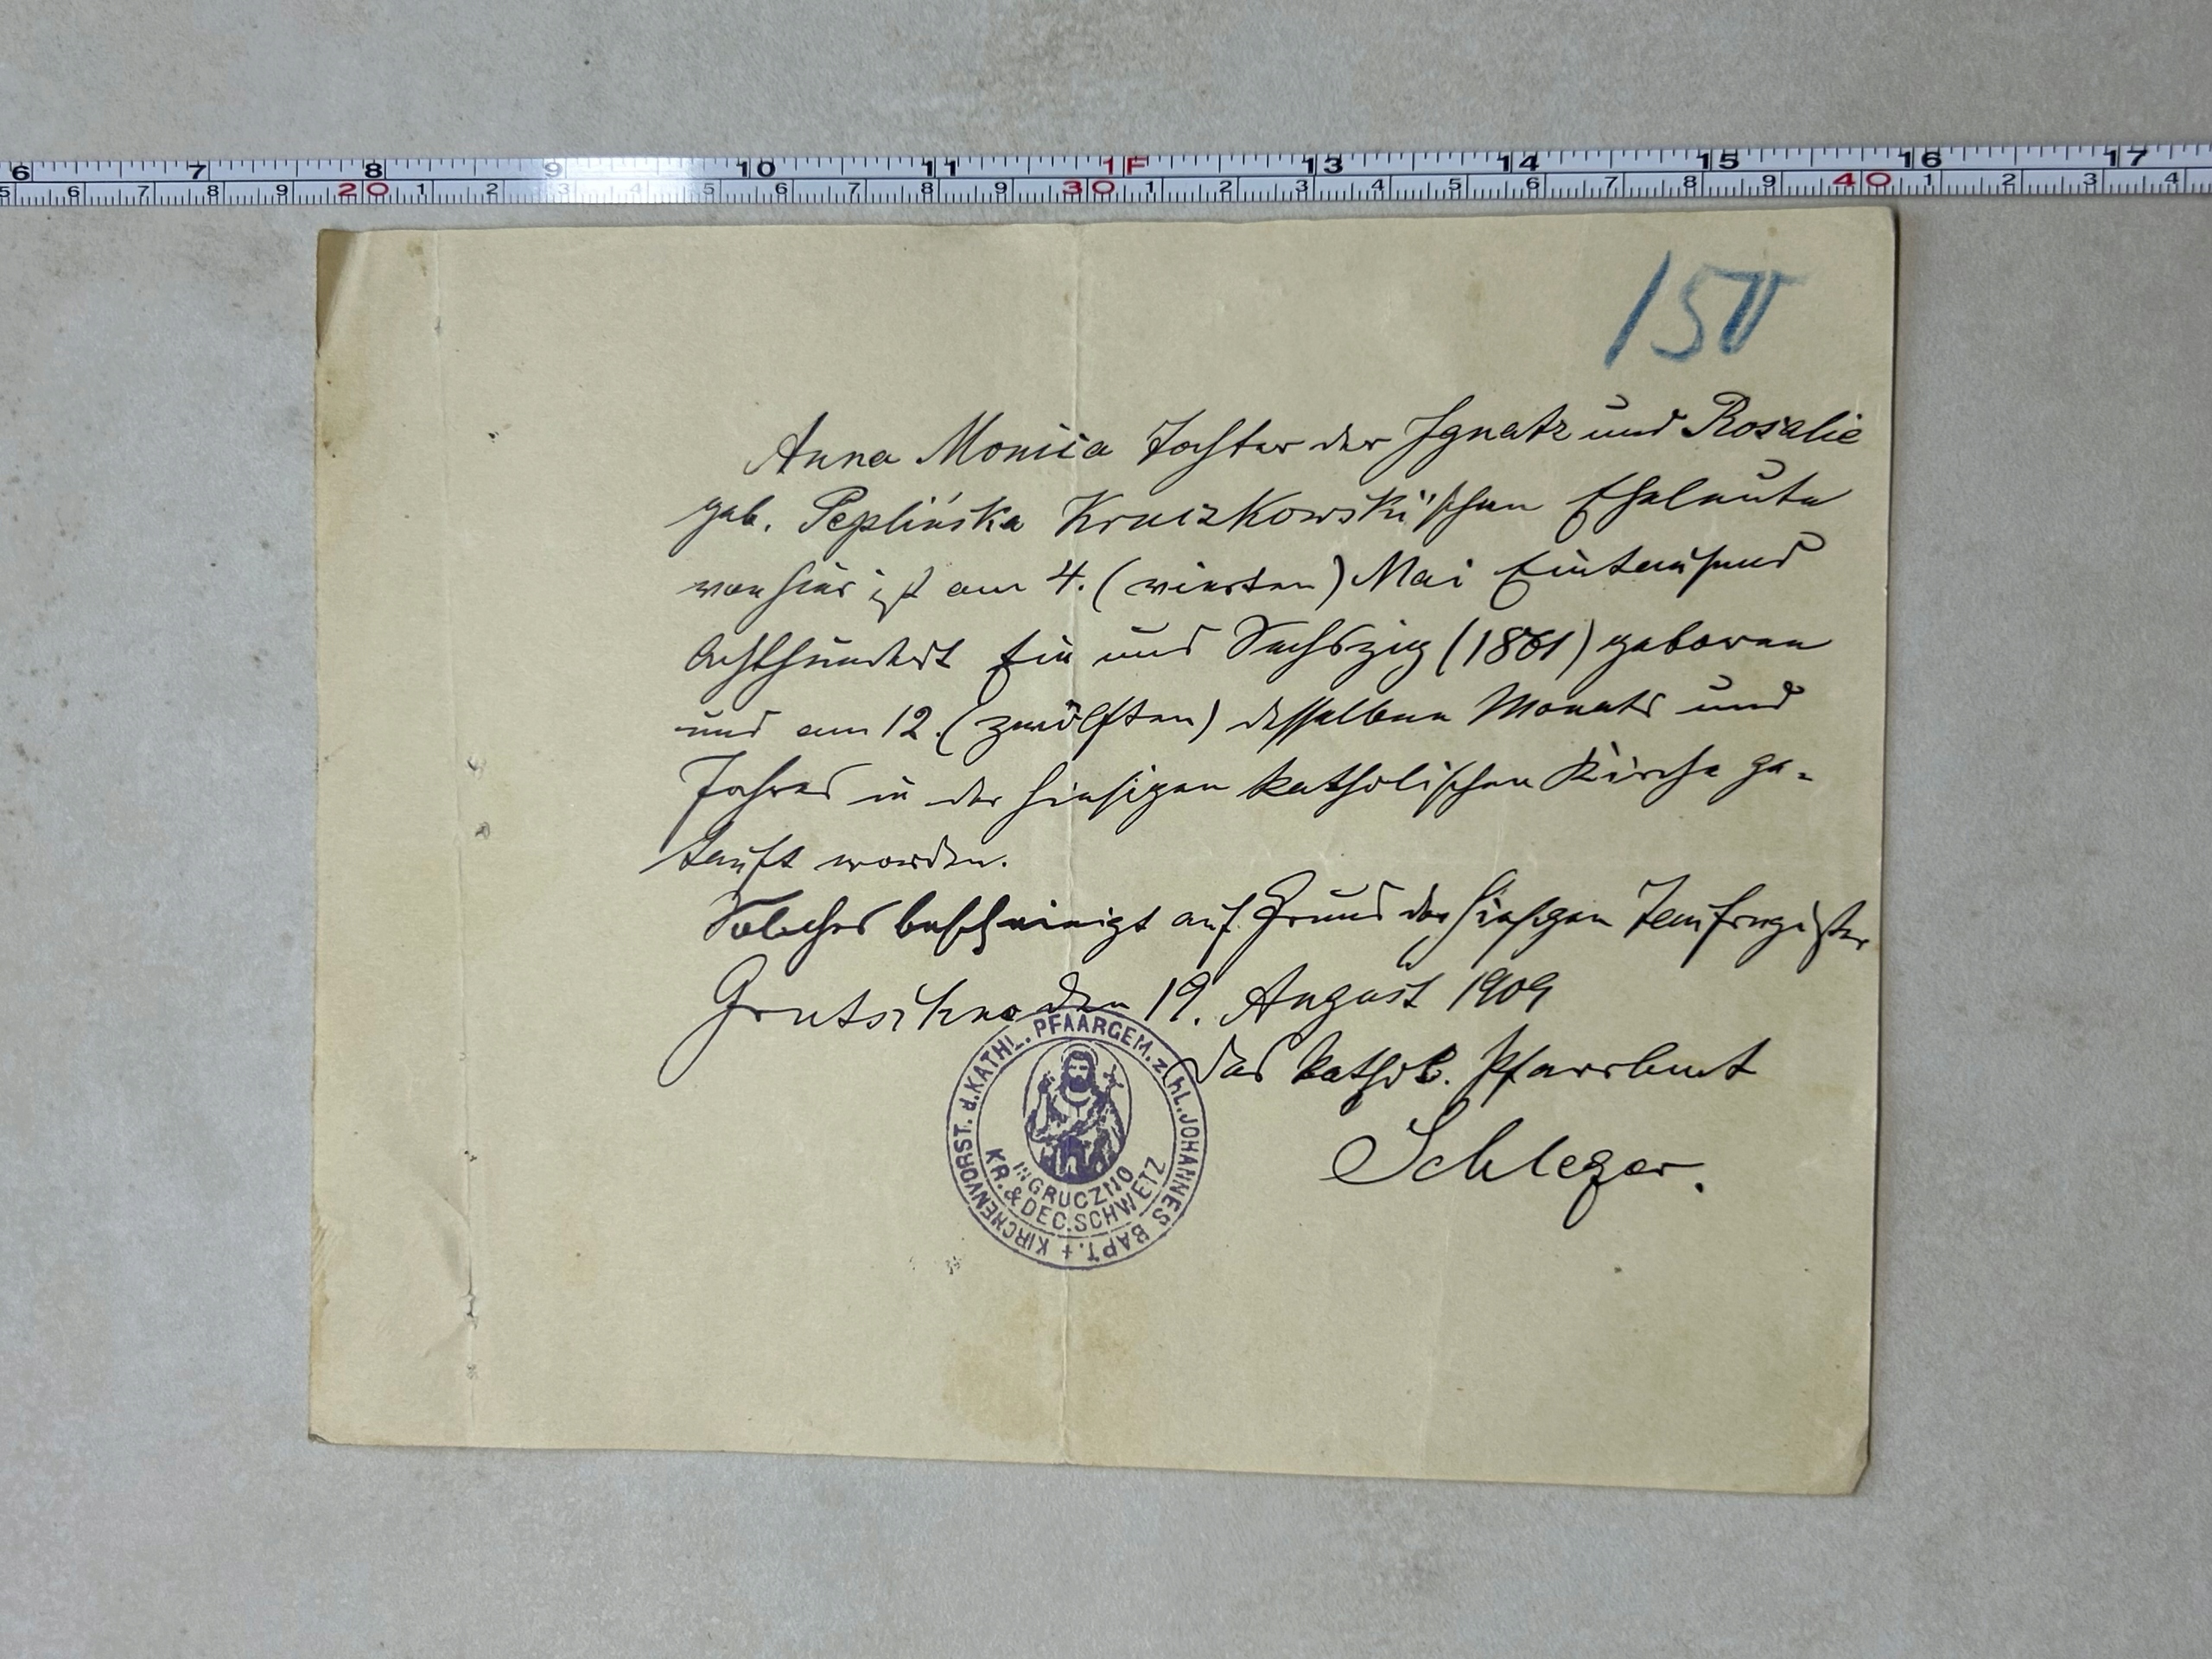 6 7 8 9 10 11 1F 13 14 15 16 17
5 6 7 8 9 20 1 2 3 4 5 6 7 8 9 30 1 2 3 4 5 6 7 8 9 40 1 2 3 4
150
Anna Monica Tochter der Ignatz und Rosalie
geb. Peplińska Kruczkowski'schen Eheleute
von hier ist am 4. (vierten) Mai Eintausend
Achthundert Ein und Sechszig (1861) geboren
und am 12. (zwölften) desselben Monats und
Jahres in der hiesigen katholischen Kirche ge-
tauft worden.
Solches bescheinigt auf Grund der hiesigen Taufregister
Grutschno den 19. August 1909
Das kathol. Pfarramt
KIRCHENVORST. d. KATHL. PFAARGEM. z. hL. JOHANNES BAPT. +
IN GRUCZNO
KR. & DEC. SCHWETZ